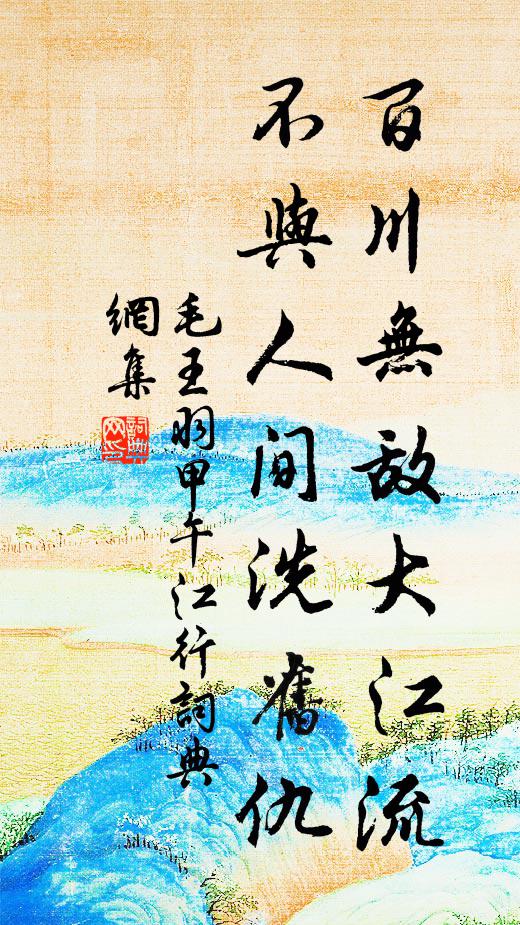 百川無敵大江流
不與人間洗舊仇
毛王羽甲午江行詞典
網集